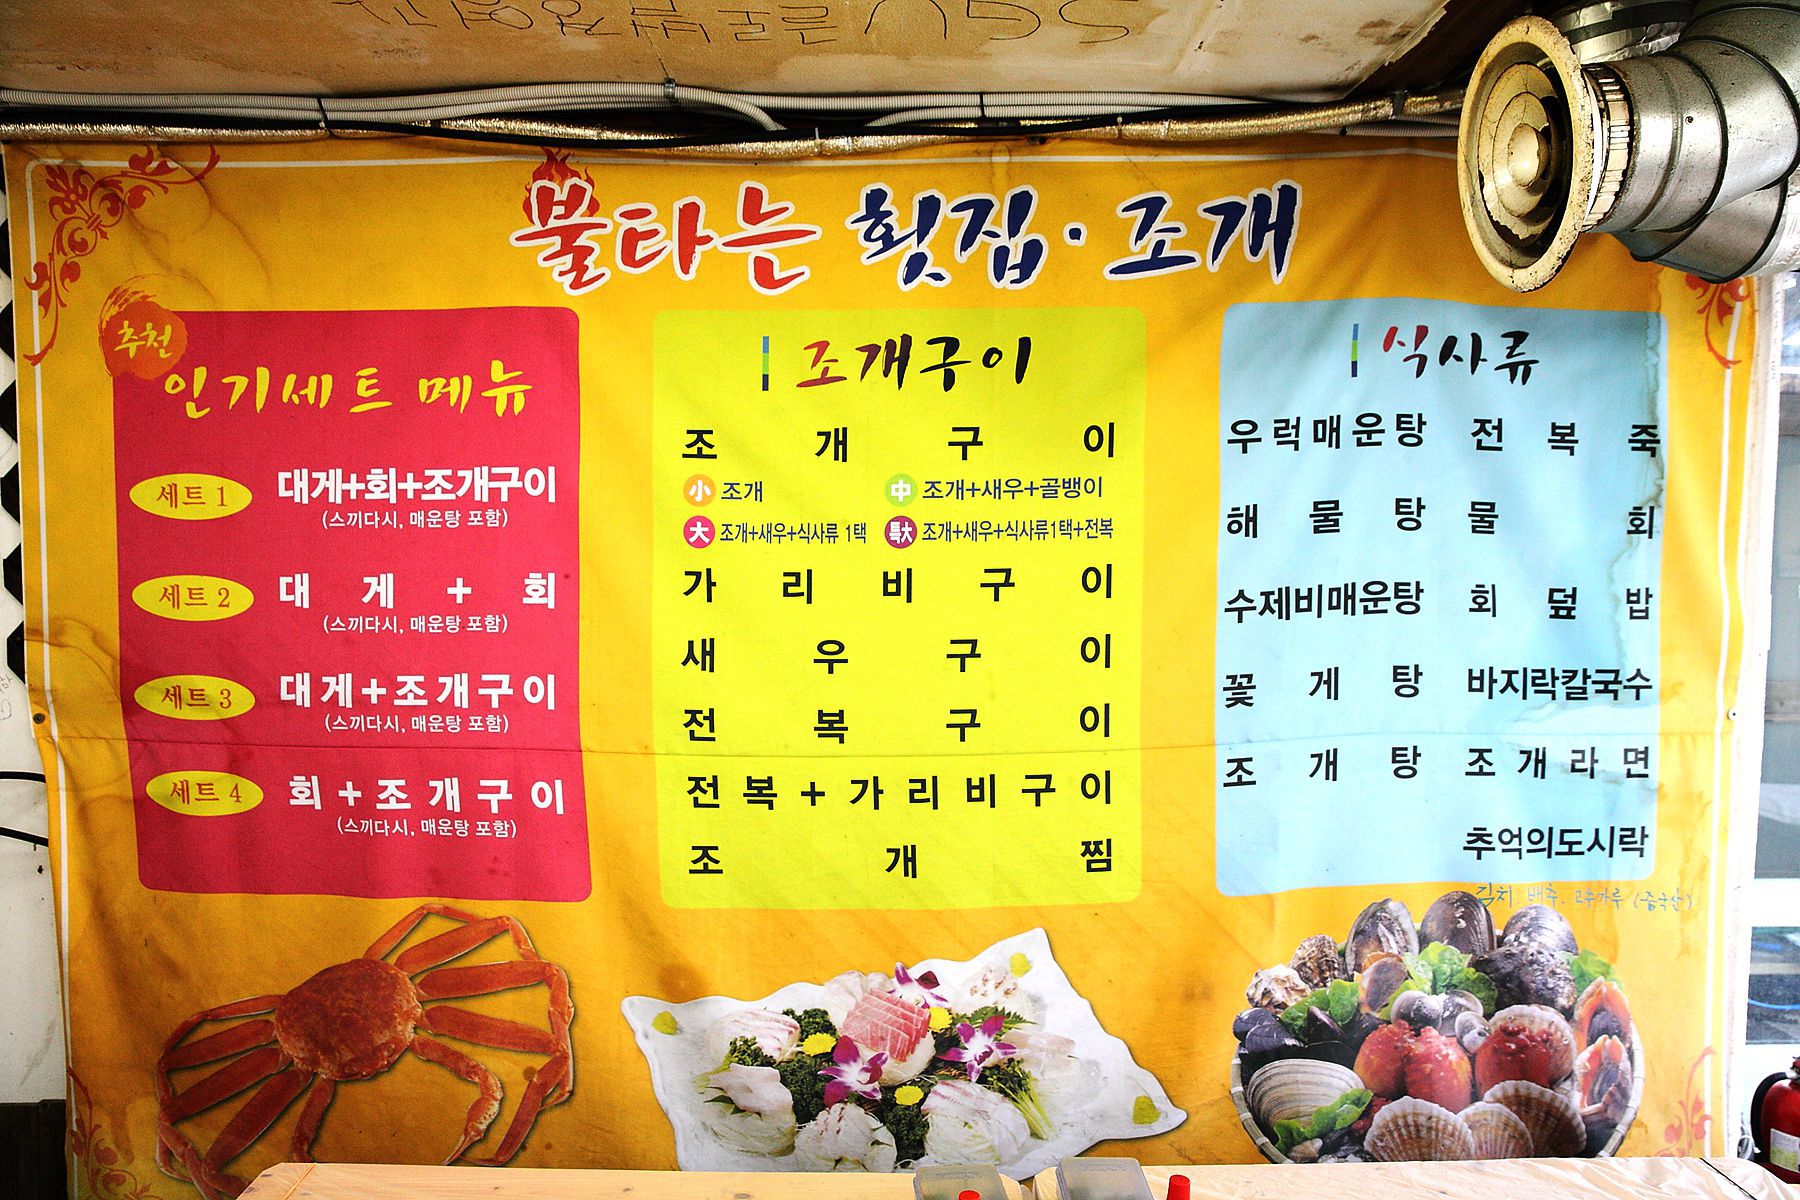 불타는 횟집·조개
추천
인기세트 메뉴
세트 1 대게+회+조개구이
(스끼다시, 매운탕 포함)
세트 2 대게+회
(스끼다시, 매운탕 포함)
세트 3 대게+조개구이
(스끼다시, 매운탕 포함)
세트 4 회+조개구이
(스끼다시, 매운탕 포함)
조개구이
조개구이
小 조개 中 조개+새우+골뱅이
大 조개+새우+식사류 1택 特大 조개+새우+식사류1택+전복
가리비구이
새우구이
전복구이
전복+가리비구이
조개찜
식사류
우럭매운탕 전복죽
해물탕 물회
수제비매운탕 회덮밥
꽃게탕 바지락칼국수
조개탕 조개라면
추억의도시락
김치. 배추. 고추가루 (중국산)